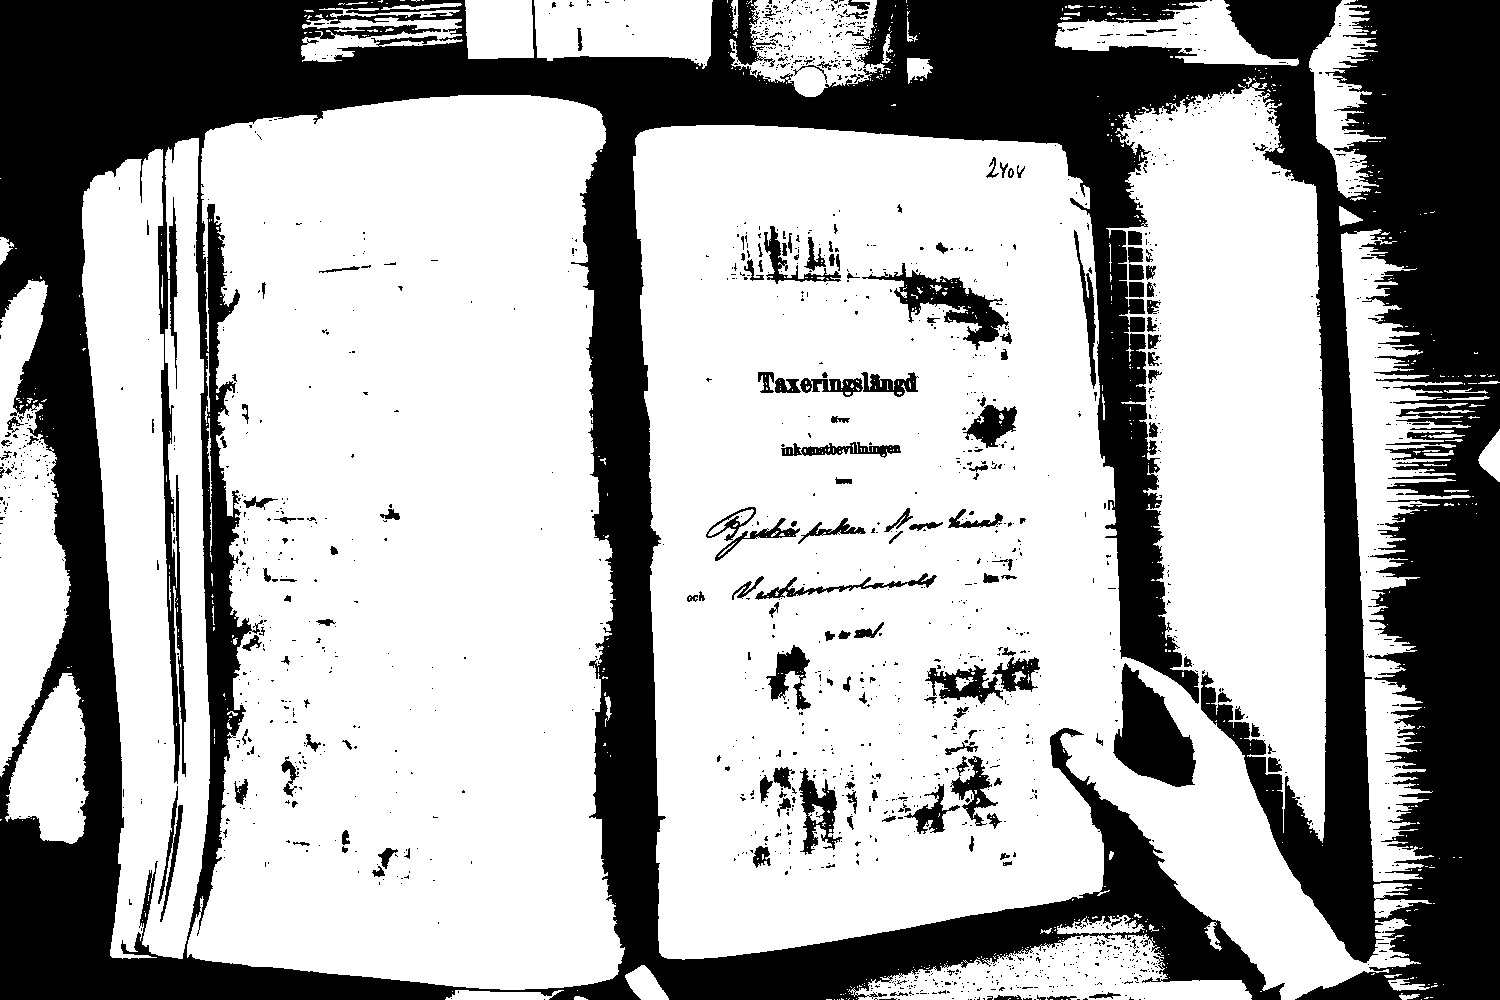 Taxeringslängd
öfver
inkomstbevillningen
inom
Bjertrå socken i Nora härad
och Vesternorrlands län